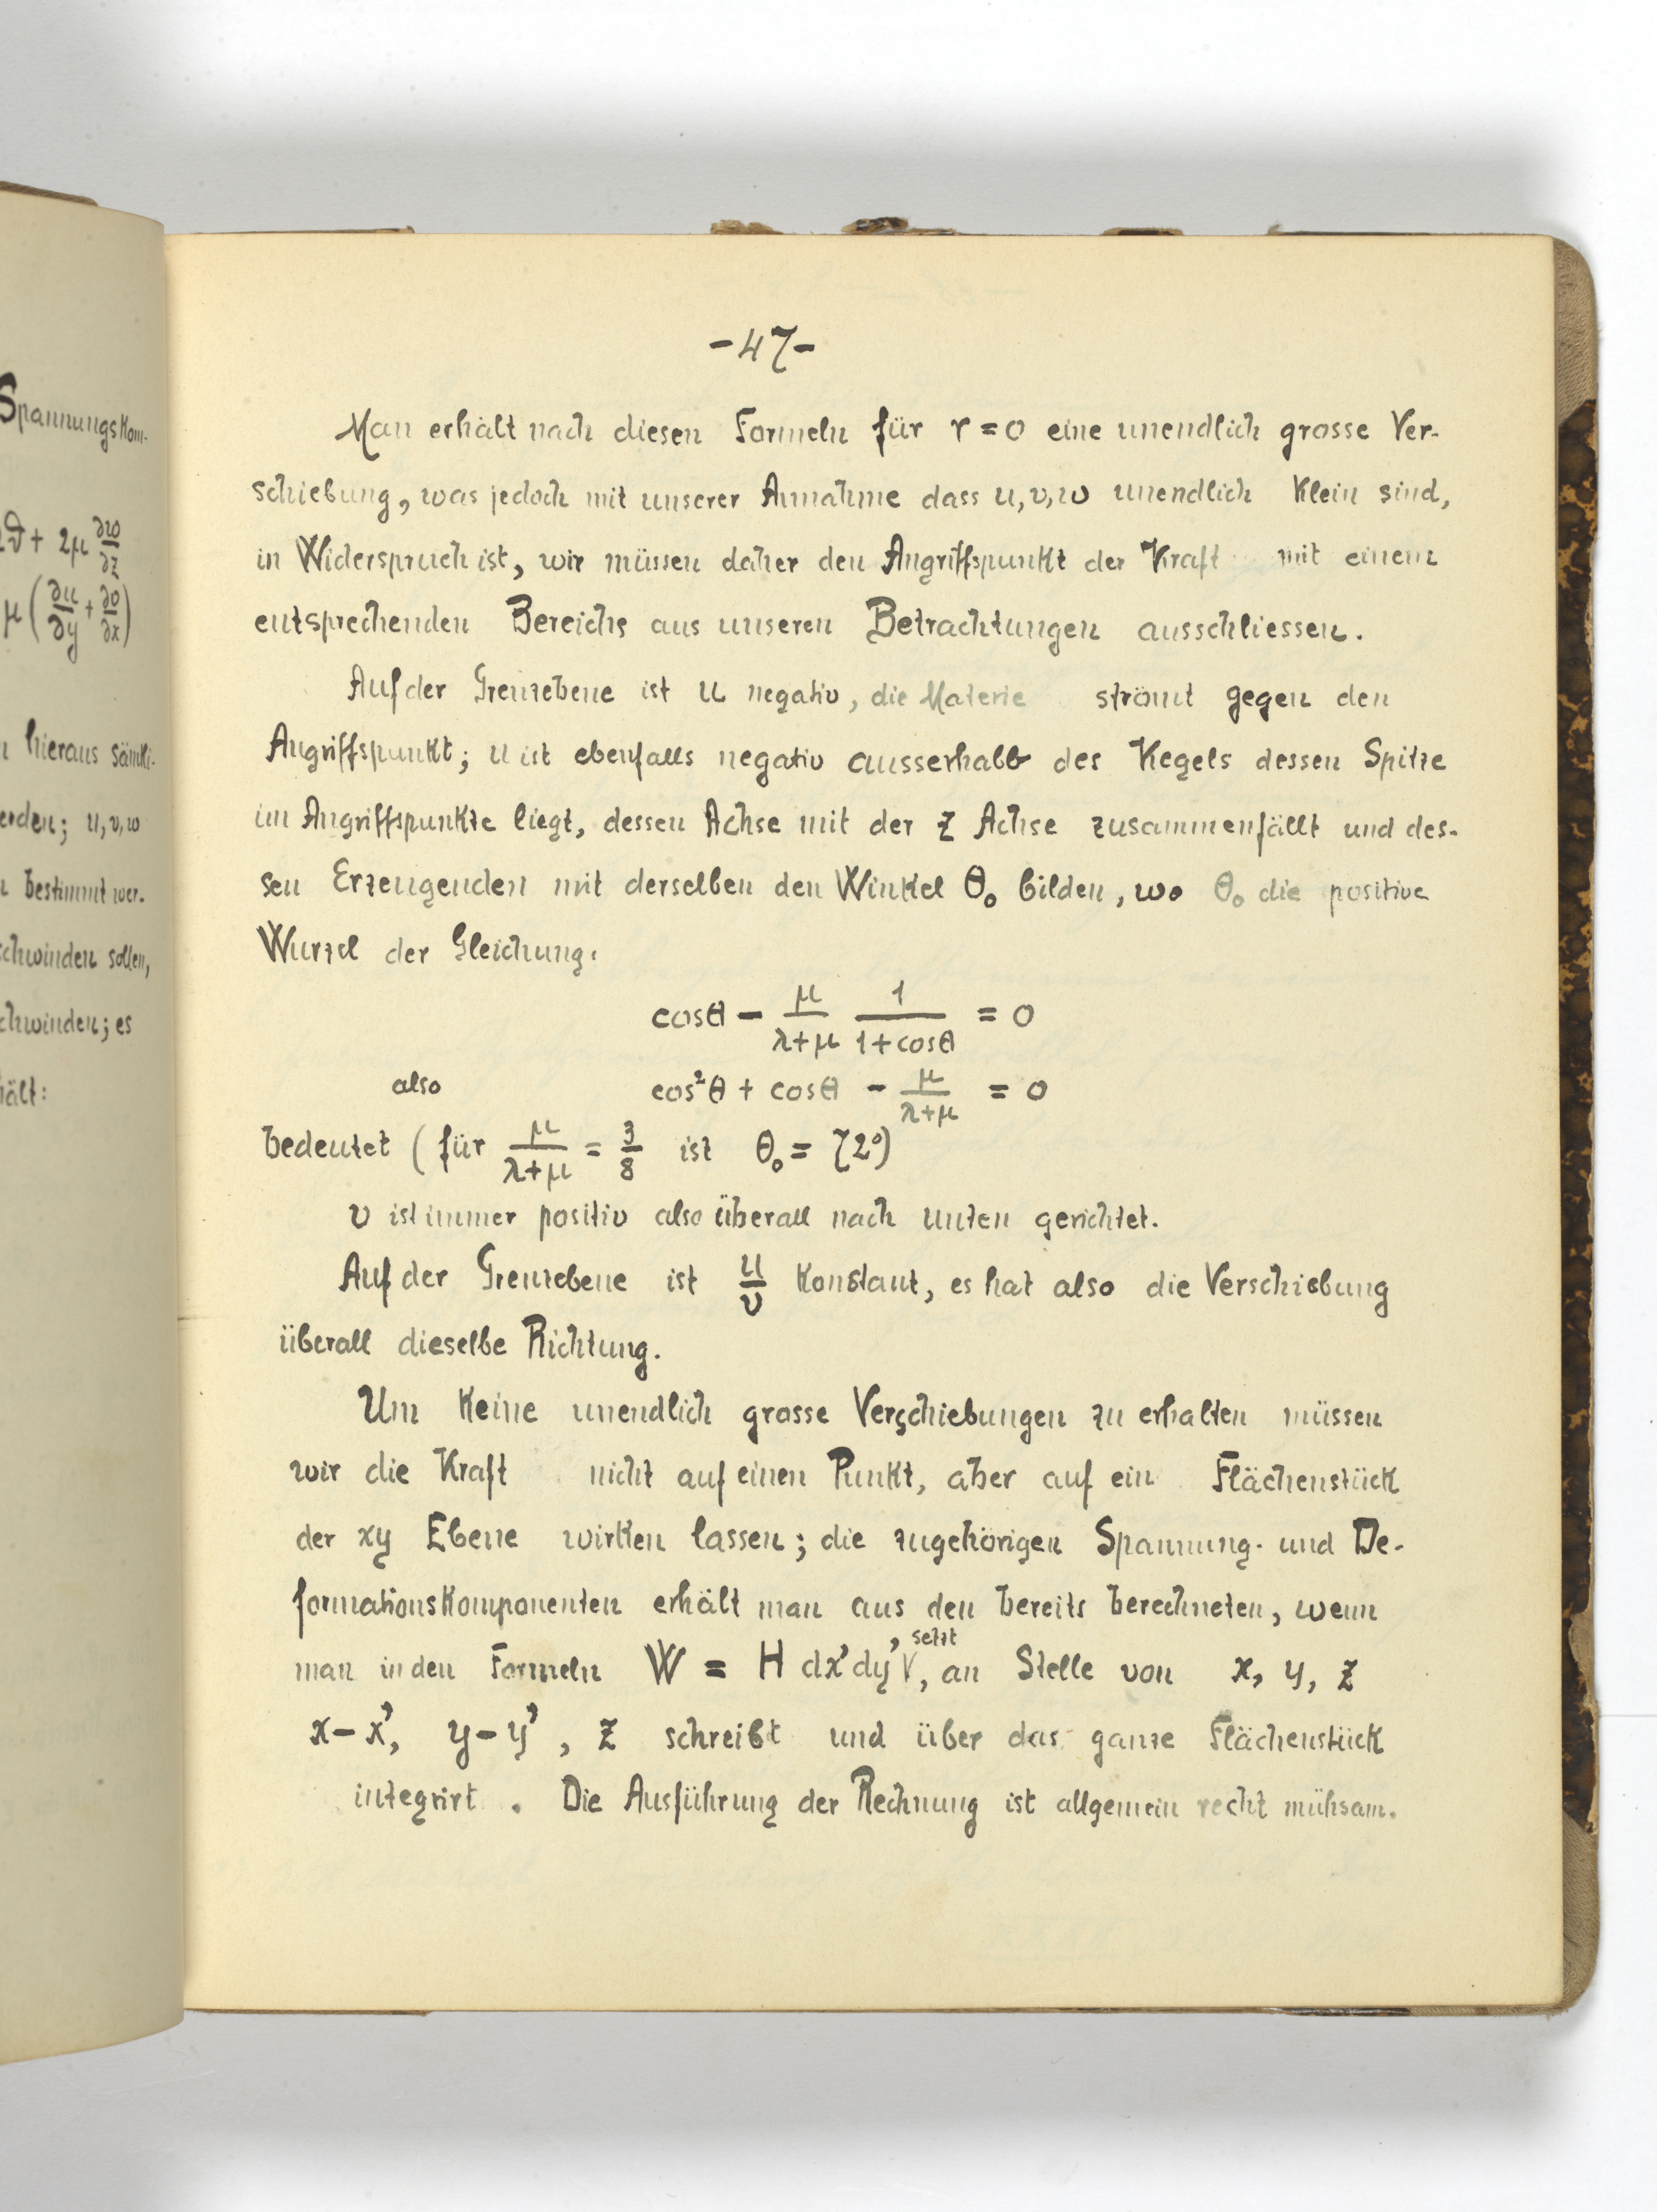 Spannungskom-
2ϑ + 2μ ∂w/∂z
μ (∂u/∂y + ∂v/∂x)
hieraus sämtli-
erden; u, v, w
bestimmt wer-
schwinden sollen,
chwinden; es
hält:
-47-
Man erhält nach diesen Formeln für r = 0 eine unendlich grosse Ver-
schiebung, was jedoch mit unserer Annahme dass u, v, w unendlich klein sind,
in Widerspruch ist, wir müssen daher den Angriffspunkt der Kraft mit einem
entsprechenden Bereichs aus unseren Betrachtungen ausschliessen.
Auf der Grenzebene ist u negativ, die Materie strömt gegen den
Angriffspunkt; u ist ebenfalls negativ ausserhalb des Kegels dessen Spitze
im Angriffspunkte liegt, dessen Achse mit der z Achse zusammenfällt und des-
sen Erzeugenden mit derselben den Winkel θ₀ bilden, wo θ₀ die positive
Wurzel der Gleichung.
cosθ - μ/(λ+μ) 1/(1+cosθ) = 0
also cos²θ + cosθ - μ/(λ+μ) = 0
bedeutet ( für μ/(λ+μ) = 3/8 ist θ₀ = 72°)
v ist immer positiv also überall nach unten gerichtet.
Auf der Grenzebene ist u/v konstant, es hat also die Verschiebung
überall dieselbe Richtung.
Um keine unendlich grosse Verschiebungen zu erhalten müssen
wir die Kraft nicht auf einen Punkt, aber auf ein Flächenstück
der xy Ebene wirken lassen; die zugehörigen Spannung- und De-
formationskomponenten erhält man aus den bereits berechneten, wenn
man in den Formeln W = H dx'dy' setzt, an Stelle von x, y, z
x-x', y-y', z schreibt und über das ganze Flächenstück
integrirt. Die Ausführung der Rechnung ist allgemein recht mühsam.